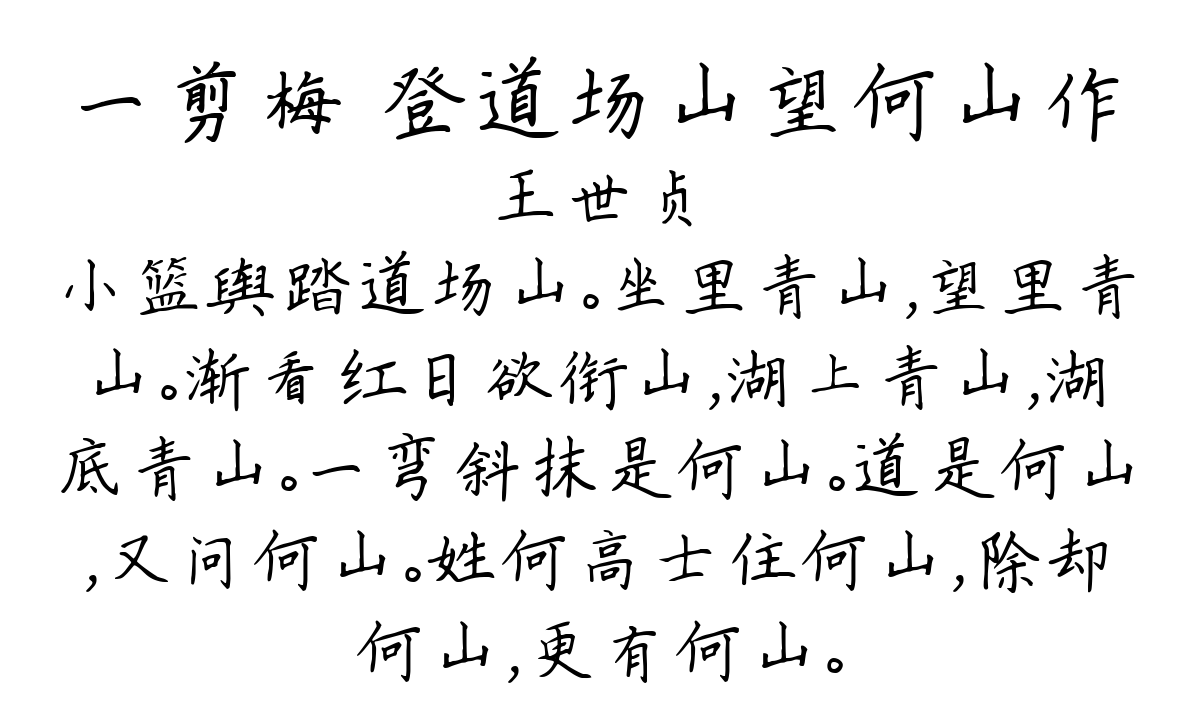 一剪梅 登道场山望何山作
王世贞
小篮舆踏道场山。坐里青山,望里青
山。渐看红日欲衔山,湖上青山,湖
底青山。一弯斜抹是何山。道是何山
,又问何山。姓何高士住何山,除却
何山,更有何山。